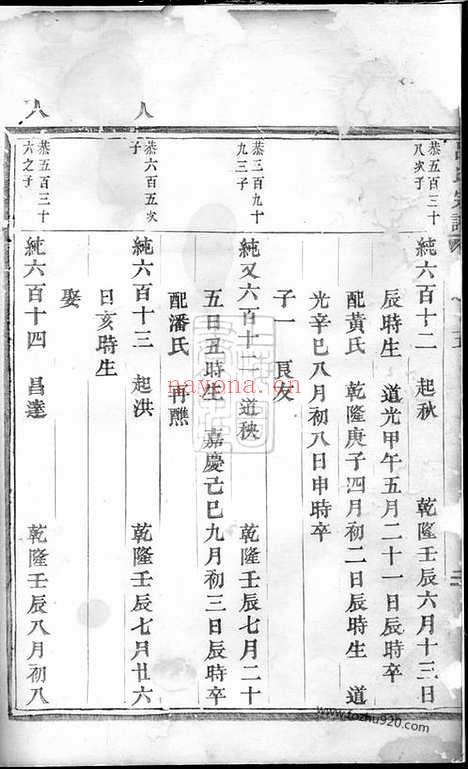 恭五百三十
八次子
純六百十二 起秋 乾隆壬辰六月十三日
辰時生 道光甲午五月二十一日辰時卒
配黃氏 乾隆庚子四月初二日辰時生 道
光辛巳八月初八日申時卒
子一 良友
恭三百九十
九三子
純又六百十二 道秧 乾隆壬辰七月二十
五日丑時生 嘉慶己巳九月初三日辰時卒
配潘氏 再醮
恭六百五次
子
純六百十三 起洪 乾隆壬辰七月廿六
日亥時生
娶
恭五百三十
六之子
純六百十四 昌達 乾隆壬辰八月初八
八
八
nayona.cn
www.tozhu920.com